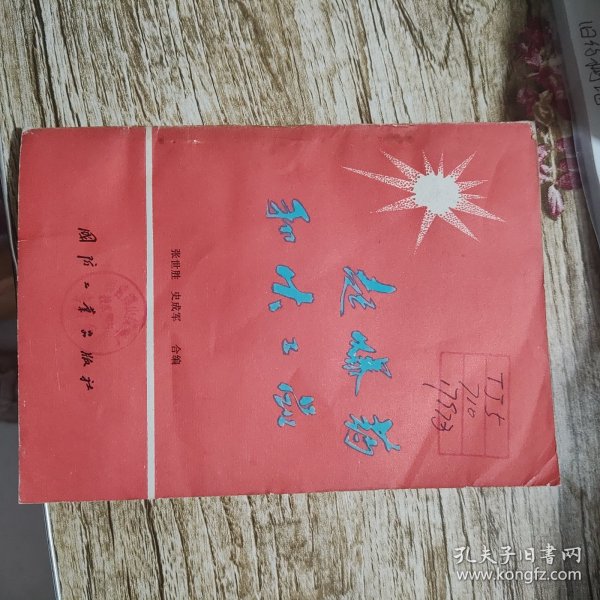 起爆药
和火工品
张世胜 史成军 合编
国防工业出版社
TJ5
710
17573
孔夫子旧书网
www.kongfz.com